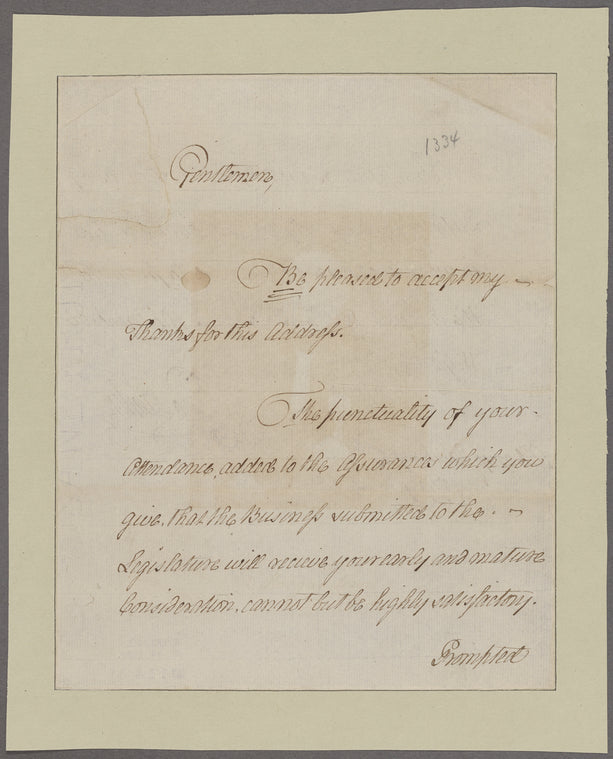 1334
Gentlemen,
Be pleased to accept my
Thanks for this Address.
The punctuality of your
Attendance, added to the Assurances which you
give, that the Business submitted to the
Legislature will recieve your early and mature
Consideration, cannot but be highly satisfactory.
Prompted